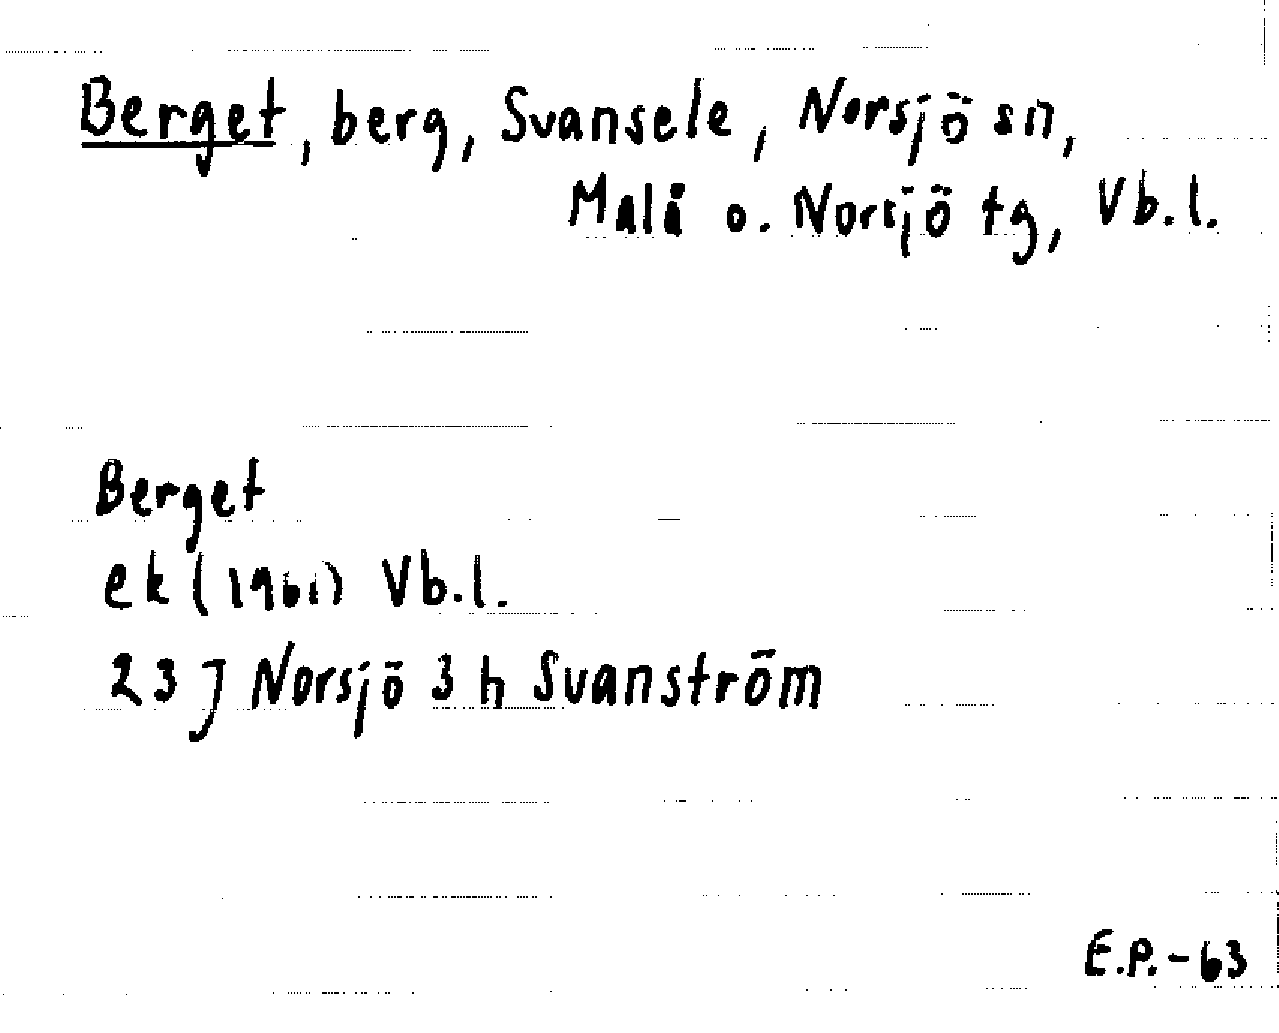 Berget, berg, Svansele, Norsjö sn,
Malå o. Norsjö tg, Vb.l.
Berget
ek (1961) Vb.l.
23 J Norsjö 3 h Svanström
E.P.-63